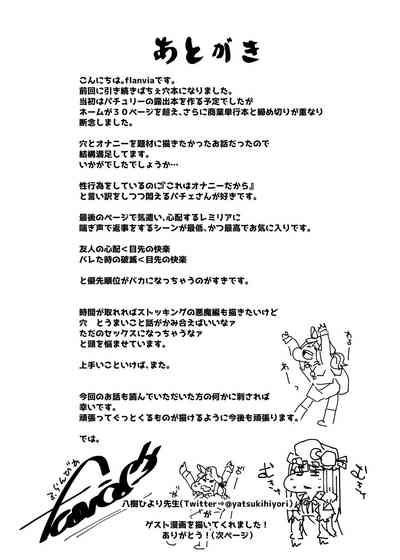 あとがき
こんにちは。flanviaです。
前回に引き続きぱちぇ穴本になりました。
当初はパチュリーの露出本を作る予定でしたが
ネームが３０ページを超え、さらに商業単行本と締め切りが重なり
断念しました。
穴とオナニーを題材に描きたかったお話だったので
結構満足してます。
いかがでしたでしょうか…
性行為をしているのに『これはオナニーだから』
と言い訳をしつつ悶えるパチェさんが好きです。
最後のページで気遣い、心配するレミリアに
喘ぎ声で返事をするシーンが最低、かつ最高でお気に入りです。
友人の心配＜目先の快楽
バレた時の破滅＜目先の快楽
と優先順位がバカになっちゃうのがすきです。
時間が取れればストッキングの悪魔編も描きたいけど
穴　とうまいこと話がかみ合えばいいなァ
ただのセックスになっちゃうなァ
と頭を悩ませています。
上手いこといけば、また。
今回のお話も読んでいただいた方の何かに刺されば
幸いです。
頑張ってぐっとくるものが描けるように今後も頑張ります。
では。
ふらんびあ
flanvia
むきゅー
むきゅー
八樹ひより先生(Twitter→@yatsukihiyori)
が
ゲスト漫画を描いてくれました！
ありがとう！(次ページ)